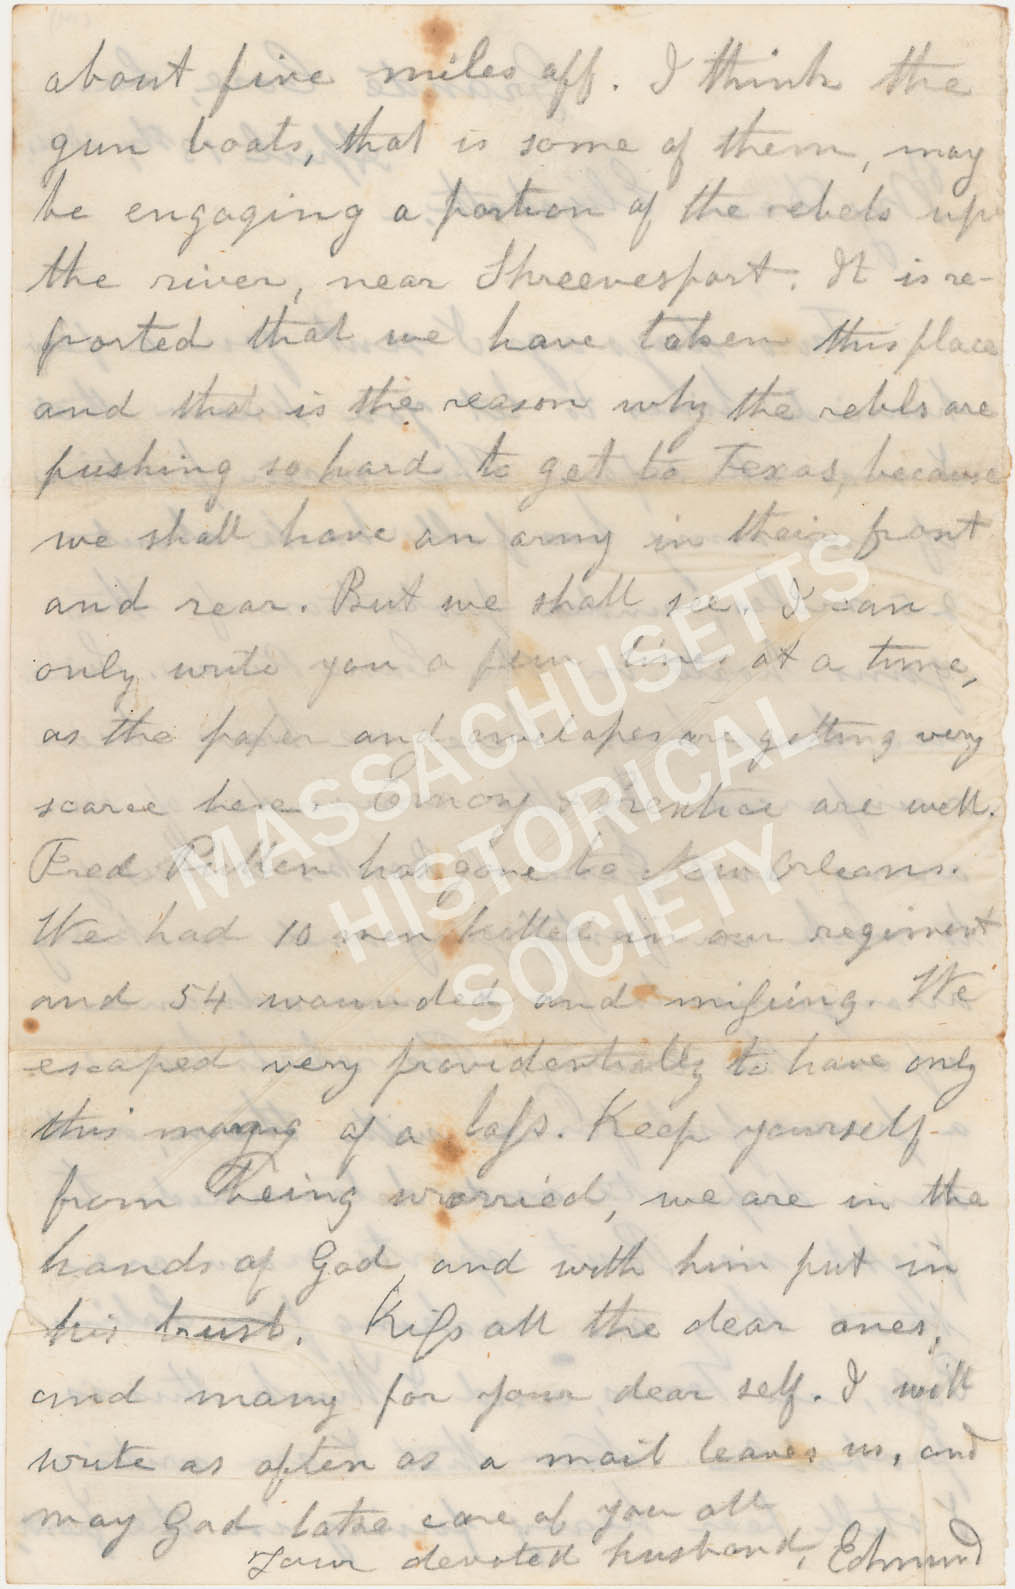 about five miles off. I think the
gun boats, that is some of them, may
be engaging a portion of the rebels up
the river, near Shreevesport. It is re-
ported that we have taken this place
and that is the reason why the rebls are
pushing so hard to get to Texas, because
we shall have an army in their front
and rear. But we shall see. I can
only write you a few lines at a time,
as the paper and envelopes are getting very
scarce here. Emory & Prentice are well.
Fred has gone to New Orleans.
We had 10 men killed in our regiment
and 54 wounded and missing. We
escaped very providentially to have only
this of a loss. Keep yourself
from being worried, we are in the
hands of God, and with him put in
his trust. Kiss all the dear ones,
and many for your dear self. I will
write as often as a mail leaves us, and
may God take care of you all
Your devoted husband, Edmund
MASSACHUSETTS
HISTORICAL
SOCIETY